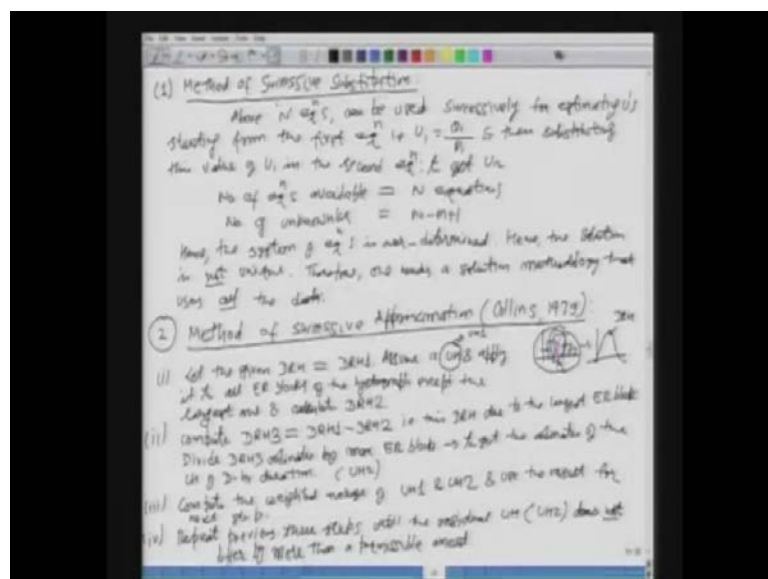 (1) Method of Successive Substitution:
Above N eqⁿs, can be used successively for estimating U's
starting from the first eqⁿ i.e U₁ = Q₁/P₁ & then substituting
this value of U₁ in the second eqⁿ. to get U₂
No of eqⁿs available = N equations
No of unknowns = N-M+1
Hence, the system of eqⁿs is over-determined. Hence, the solution
is not unique. Therefore, one needs a solution methodology that
uses all the data.
(2) Method of Successive Approximation (Collins, 1979):
UH1
DRH
(i) Let the given DRH = DRH1. Assume a UH & apply
it to all ER blocks of the hyetograph except the
largest one & calculate DRH2
(ii) Compute DRH3 = DRH1-DRH2 is this DRH due to the largest ER block
Divide DRH3 ordinates by max ER block → to get the ordinates of the
UH of D-hr duration. (UH2)
(iii) Compute the weighted average of UH1 & UH2 & use the result for
next step.
(iv) Repeat previous three steps until the residual UH (UH2) does not
differ by more than a permissible amount